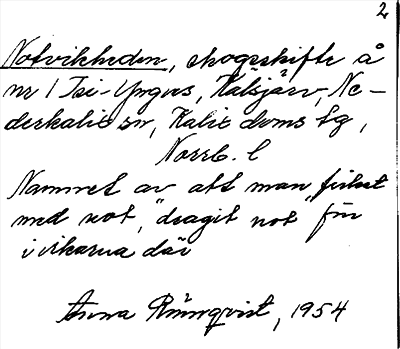 2
Notvikheden, skogsskifte å
nr 1 Isi-Yngves, Kälsjärv, Ne-
derkalix sn, Kalix doms lg,
Norrb. l
Namnet av att man "fiskat
med not," dragit not för
i vikarna där
Anna Rönnqvist, 1954